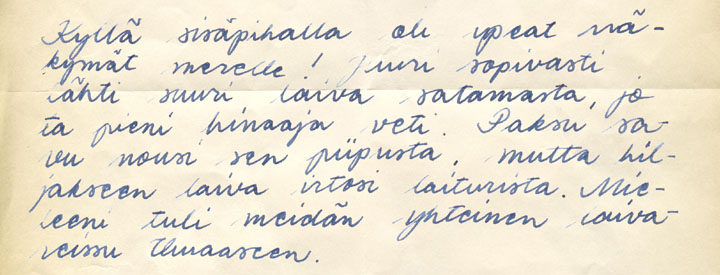 Kyllä sisäpihalla oli upeat nä-
kymät merelle! Juuri sopivasti
lähti suuri laiva satamasta, jo
ta pieni hinaaja veti. Paksu sa-
vu nousi sen piipusta, mutta hil-
jakseen laiva irtosi laiturista. Mie-
leeni tuli meidän yhteinen laiva-
reissu